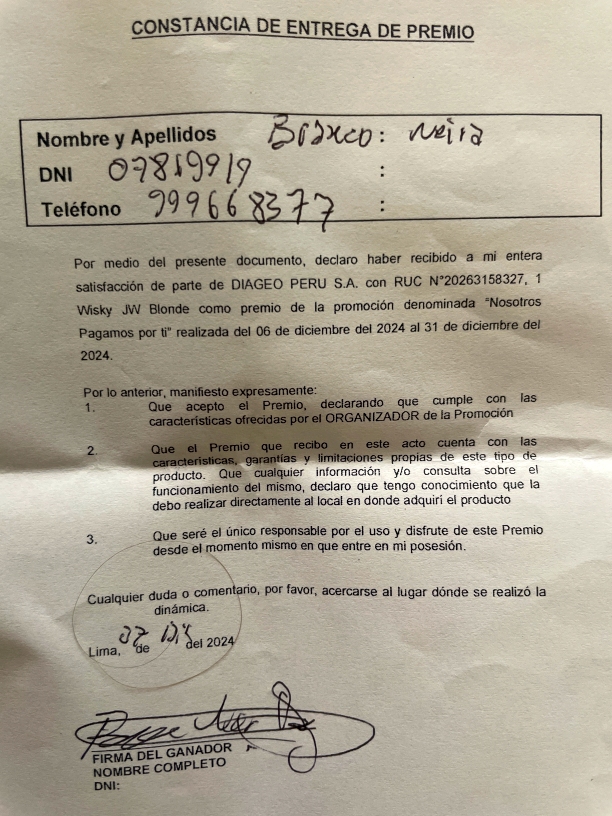 CONSTANCIA DE ENTREGA DE PREMIO
Nombre y Apellidos : Neira
DNI 07819919 :
Teléfono 999668377 :
Por medio del presente documento, declaro haber recibido a mi entera
satisfacción de parte de DIAGEO PERU S.A. con RUC N°20263158327, 1
Wisky JW Blonde como premio de la promoción denominada “Nosotros
Pagamos por ti” realizada del 06 de diciembre del 2024 al 31 de diciembre del
2024.
Por lo anterior, manifiesto expresamente:
1. Que acepto el Premio, declarando que cumple con las
características ofrecidas por el ORGANIZADOR de la Promoción
2. Que el Premio que recibo en este acto cuenta con las
características, garantías y limitaciones propias de este tipo de
producto. Que cualquier información y/o consulta sobre el
funcionamiento del mismo, declaro que tengo conocimiento que la
debo realizar directamente al local en donde adquirí el producto
3. Que seré el único responsable por el uso y disfrute de este Premio
desde el momento mismo en que entre en mi posesión.
Cualquier duda o comentario, por favor, acercarse al lugar dónde se realizó la
dinámica.
Lima, de Dic del 2024
FIRMA DEL GANADOR
NOMBRE COMPLETO
DNI: